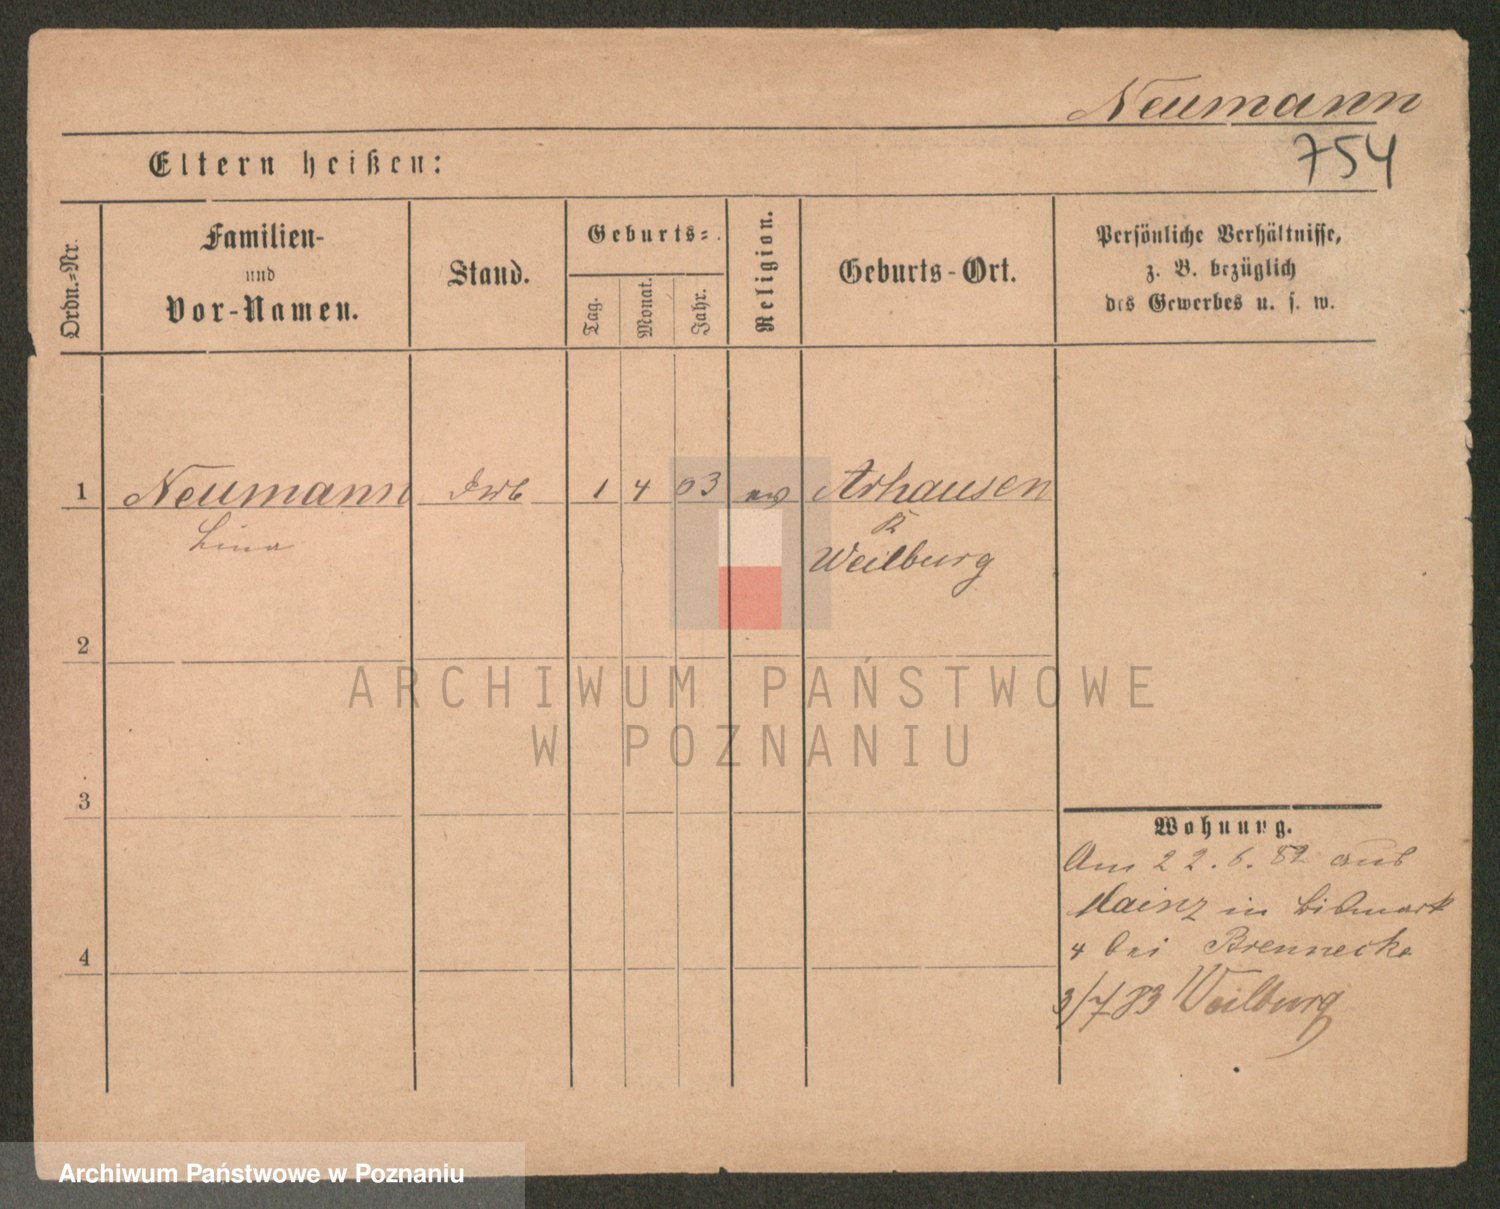 Neumann
754
Eltern heißen:
Ordn.-Nr.
Familien-
und
Vor-Namen.
Stand.
Geburts-
Tag.
Monat.
Jahr.
Religion.
Geburts-Ort.
Persönliche Verhältnisse,
z. B. bezüglich
des Gewerbes u. s. w.
1 Neumann 1 4 03 Arhausen
Lina
Weilburg
2
ARCHIWUM PAŃSTWOWE
W POZNANIU
3
Wohnung.
Am 22.6.82 aus
Mainz in Bismark
4 bei Brennecke
3/7 83 Weilburg
4
Archiwum Państwowe w Poznaniu